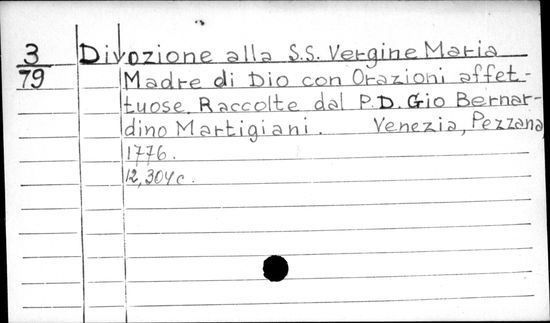 3 Divozione alla S.S. Vergine Maria
79 Madre di Dio con Orazioni affet-
tuose. Raccolte dal P.D. Gio Bernar-
dino Martigiani. Venezia, Pezzana,
1776.
12,304c.